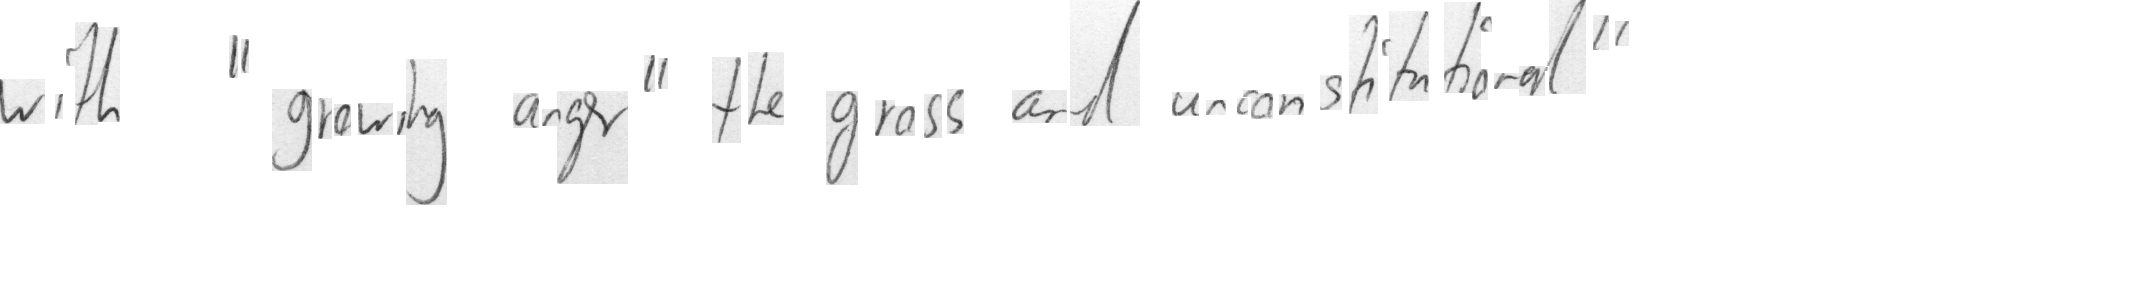 with "growing anger" the gross and unconstitutional"